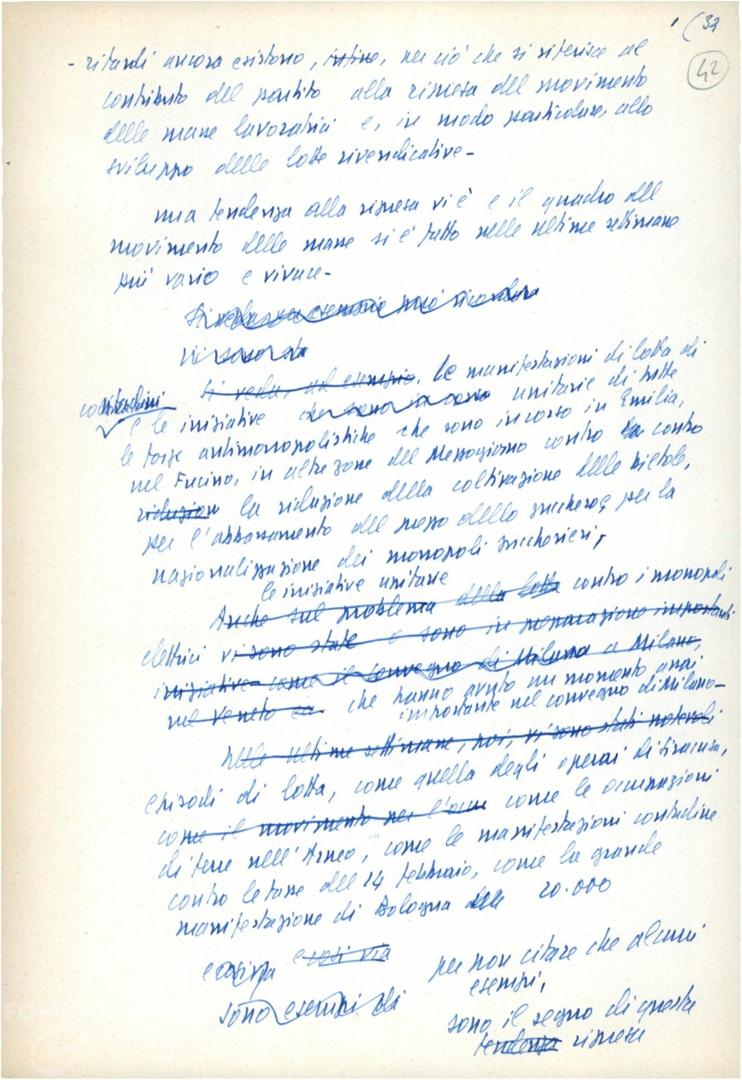 (32
42
- ritardi ancora esistono, infine, per ciò che si riferisce al
contributo del partito alla ripresa del movimento
delle masse lavoratrici e, in modo particolare, allo
sviluppo delle lotte rivendicative -
una tendenza alla ripresa vi è e il quadro del
movimento delle masse si è fatto nelle ultime settimane
più vario e vivace -
Vi sono state
Si veda, ad esempio, le manifestazioni di lotta di
contadini
e le iniziative che sono in corso unitarie di tutte
le forze antimonopolistiche che sono in corso in Emilia,
nel Fucino, in altre zone del Mezzogiorno contro la contro
riduzion la riduzione della coltivazione delle bietole,
per l'abbassamento del prezzo dello zucchero e per la
nazionalizzazione dei monopoli zuccherieri,
le iniziative unitarie
Anche sul problema della lotta contro i monopoli
elettrici vi sono state e sono in preparazione importanti
iniziative come il convegno di Milano a Milano,
nel Veneto che hanno avuto un momento assai
importante nel convegno di Milano -
Nelle ultime settimane, poi, vi sono stati notevoli
episodi di lotta, come quella degli operai di Siracusa,
come il movimento per l'occu come le occupazioni
di terre nell'Arneo, come le manifestazioni contadine
contro le tasse del 14 febbraio, come la grande
manifestazione di Bologna dei 20.000
e così via
per non citare che alcuni
esempi,
sono esempi di
sono il segno di questa
tendenza ripresa